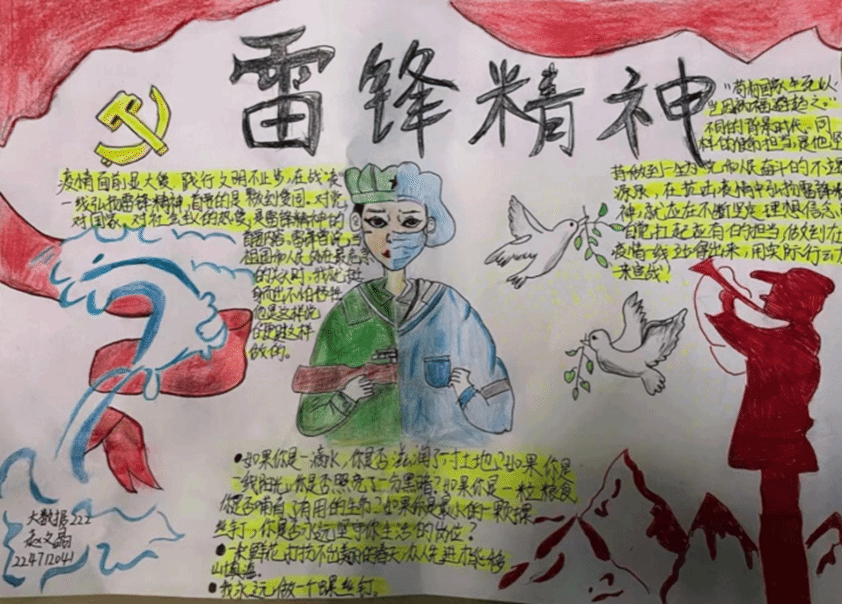 雷锋精神
疫情面前显大爱，践行文明不止步，在战疫
一线弘扬雷锋精神，首要的是
对国家、对社会
祖国和人民
的关头时，我
他是这样说
的更是这样
做的。
"苟利国家生死以
岂因祸福避趋之。"
不同的背景时代，同
样的使命担当，是他坚
持做到一生为党和人民奋斗的不竭
源泉，在抗击疫情中弘扬雷锋精
神，就应在不断坚定理想信念
自觉扛起应有的担当，做到在
疫情一线站得出来，用实际行动
来迎战！
●如果你是一滴水，你是否滋润了一寸土地？如果你是
一线阳光，你是否照亮了一分黑暗？如果你是一粒粮食
你是否哺育了有用的生命？如果你是最小的一颗螺
丝钉，你是否永远坚守你生活的岗位？
●一朵鲜花打扮不出美丽的春天，众人先进才能移
山填海。
●我永远做一个螺丝钉。
大数据222
224712041